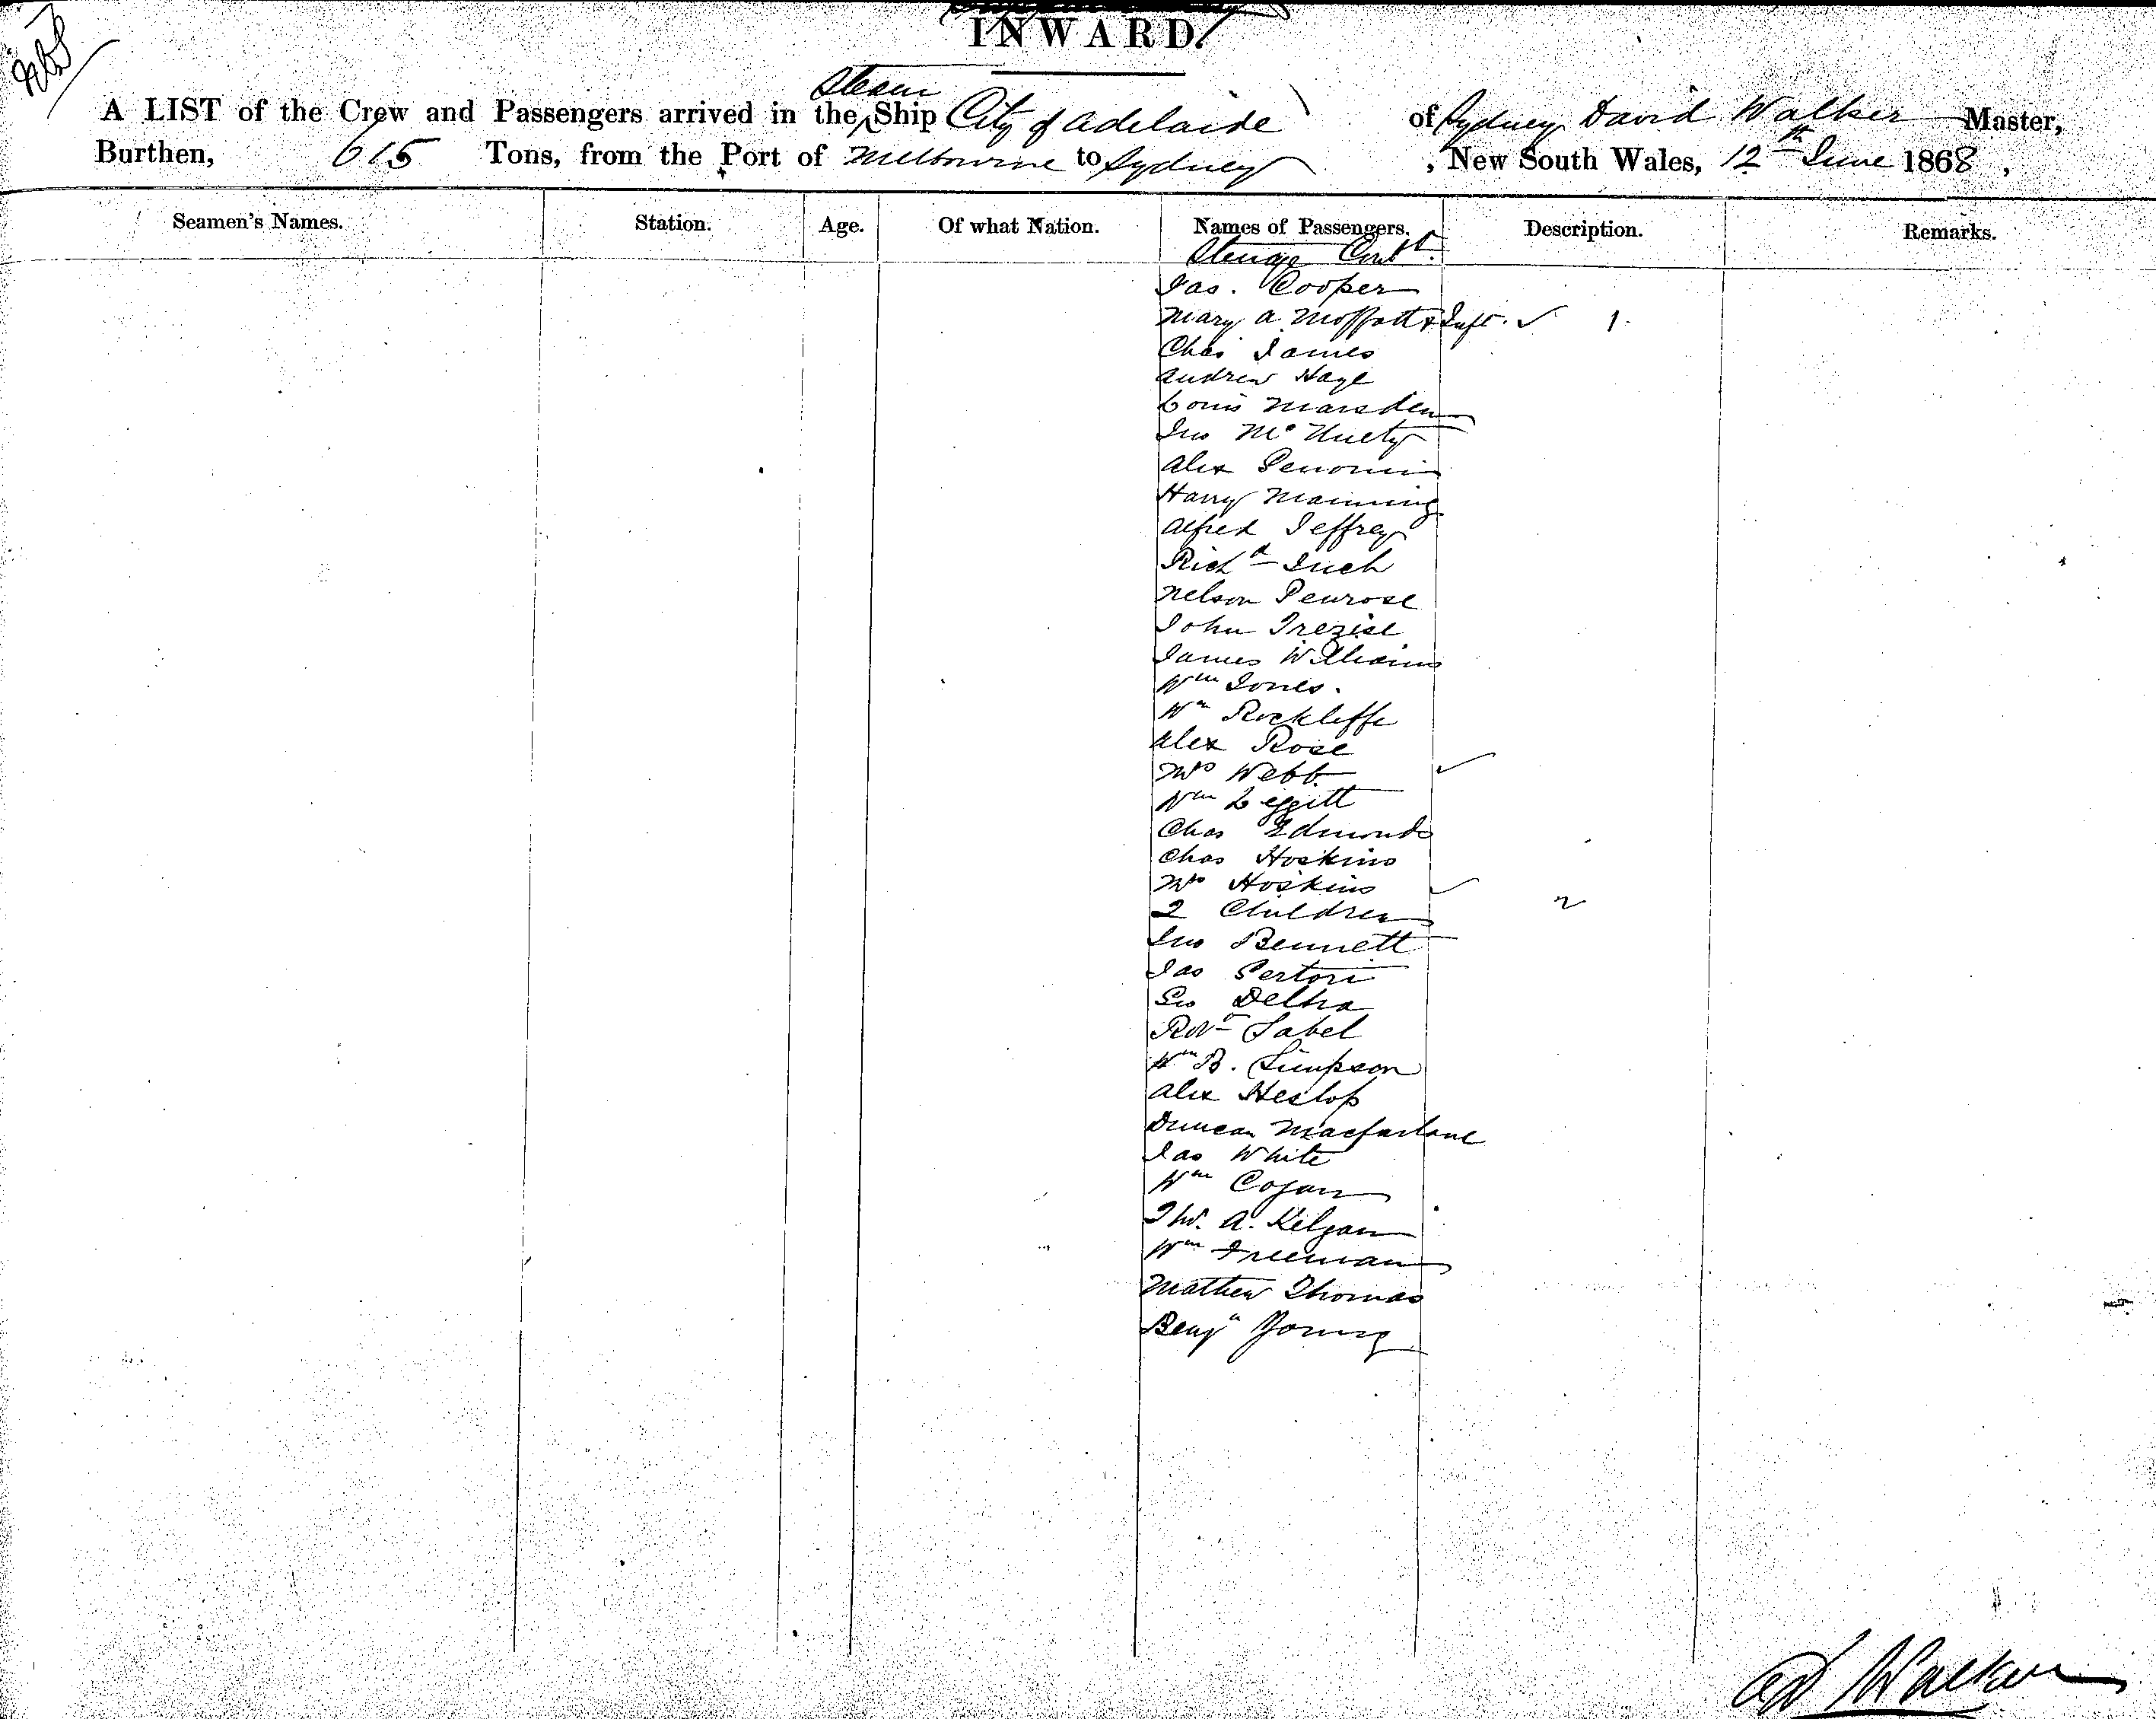 INWARD
Steam
A LIST of the Crew and Passengers arrived in the Ship City of Adelaide of Sydney David Walker Master,
Burthen, 615 Tons, from the Port of Melbourne to Sydney, New South Wales, 12th June 1868,
Seamen's Names. Station. Age. Of what Nation. Names of Passengers. Description. Remarks.
Steerage Contd.
Jas. Cooper
Mary A Moffatt & Inft. ✓ 1.
Chas James
Andrew Hage
Louis Marsden
Jno Mc
Alex
Harry Manning
Alfred Jeffrey
Richd Inch
Nelson Penrose
John Trezise
James Williams
Wm Jones.
Wm Rockliffe
Alex Rose
Mrs Webb ✓
Wm Leggitt
Chas Edmonds
Chas Hoskins
Mrs Hoskins ✓
2 Children 2
Jno Bennett
Jas Sertori
Geo Delhra
Robt Sabel
Wm B. Simpson
Alex Heslop
Duncan Macfarlane
Jas White
Wm Cogan
A. Kilgan
Wm Freeman
Mathew Thomas
Benjn Young
Walker